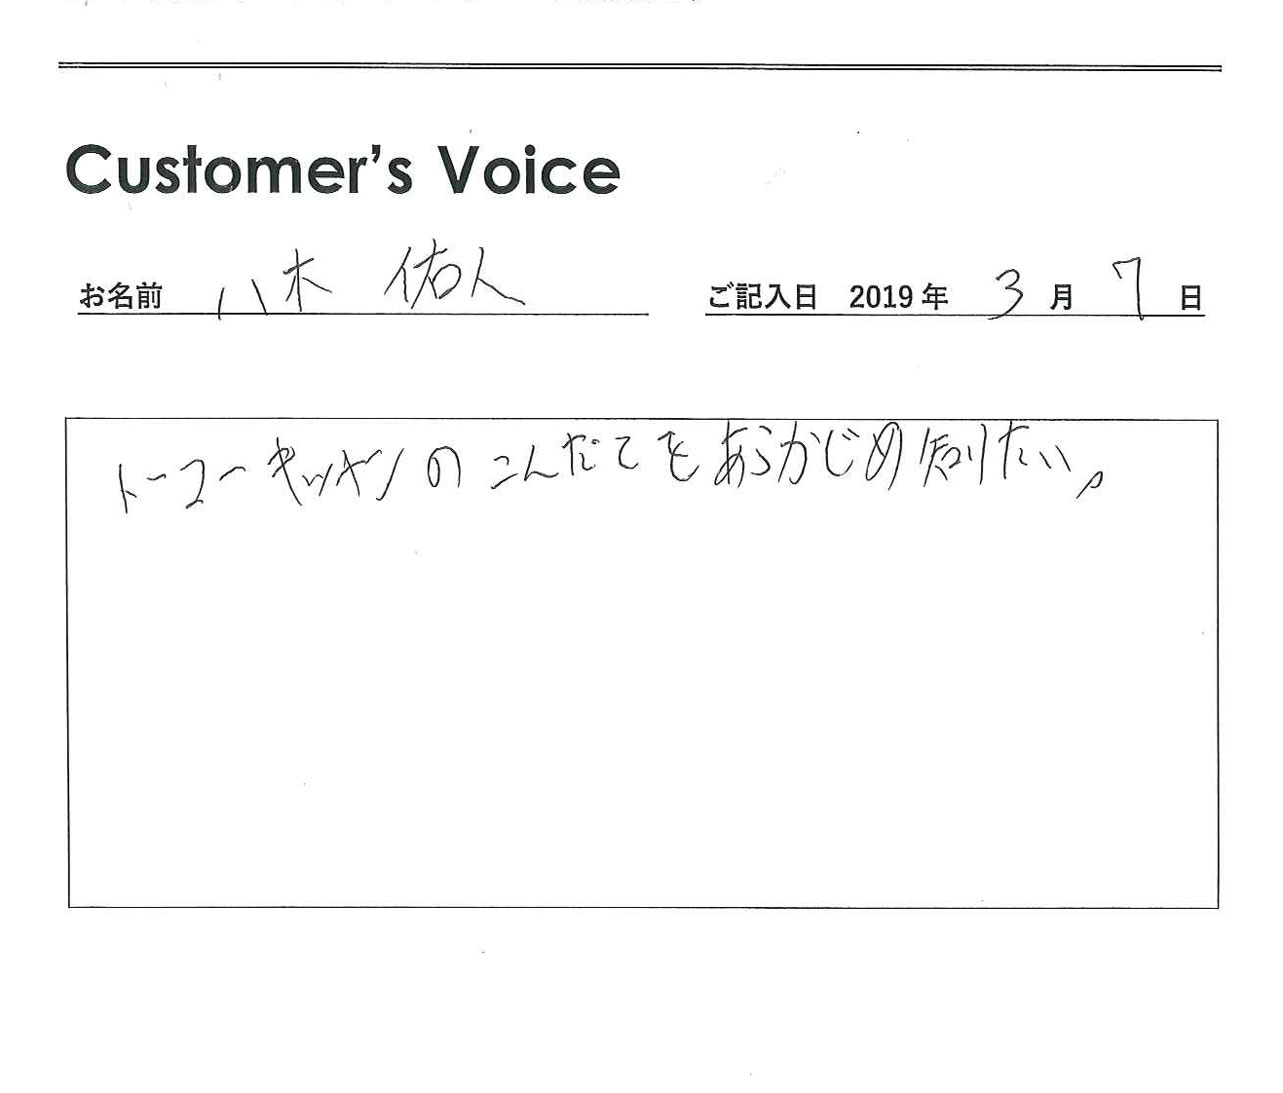 Customer's Voice
お名前 八木 佑人 ご記入日 2019年 3月 7日
トーコーキッチンのこんだてをあらかじめ知りたい。